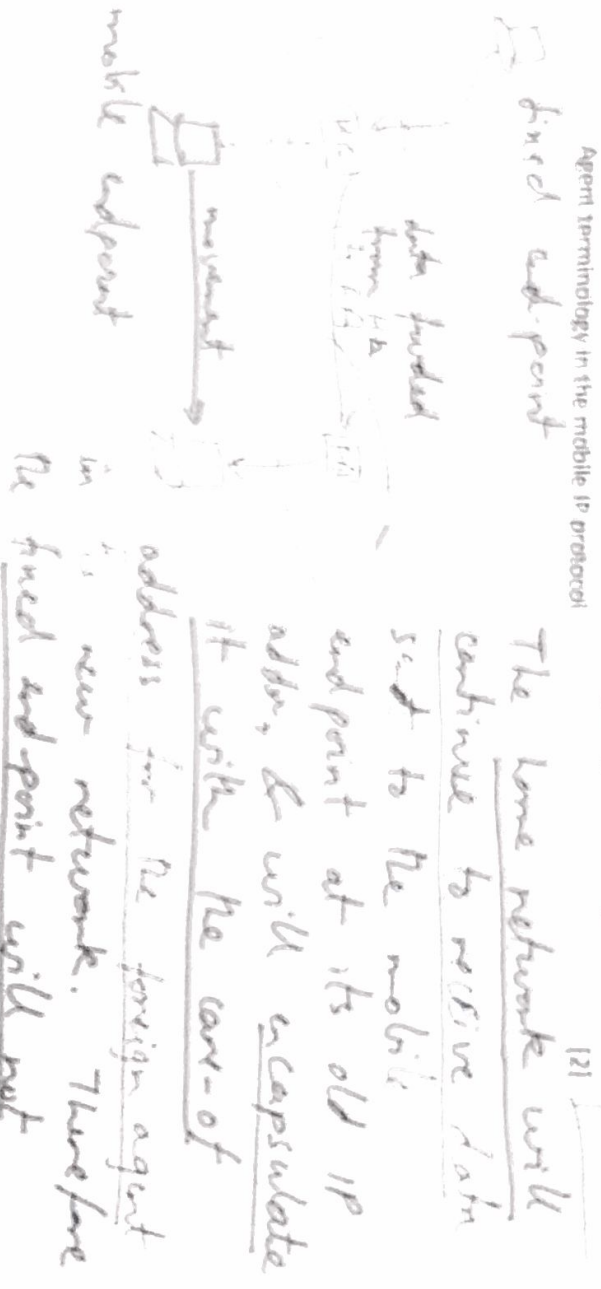 Agent terminology in the mobile IP protocol
[2]
fixed end-point
data
from HA
HA
FA
movement
mobile endpoint
The home network will
continue to receive data
sent to the mobile
endpoint at its old IP
addr, & will encapsulate
it with the care-of
address for the foreign agent
in new network. Therefore
the fixed end-point will not